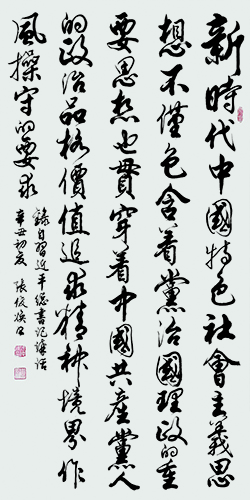 新時代中國特色社會主義思
想不僅包含着黨治國理政的重
要思想也貫穿着中國共產黨人
的政治品格價值追求精神境界作
風操守的要求
錄自習近平總書記講話
辛丑初夏 張俊煥書